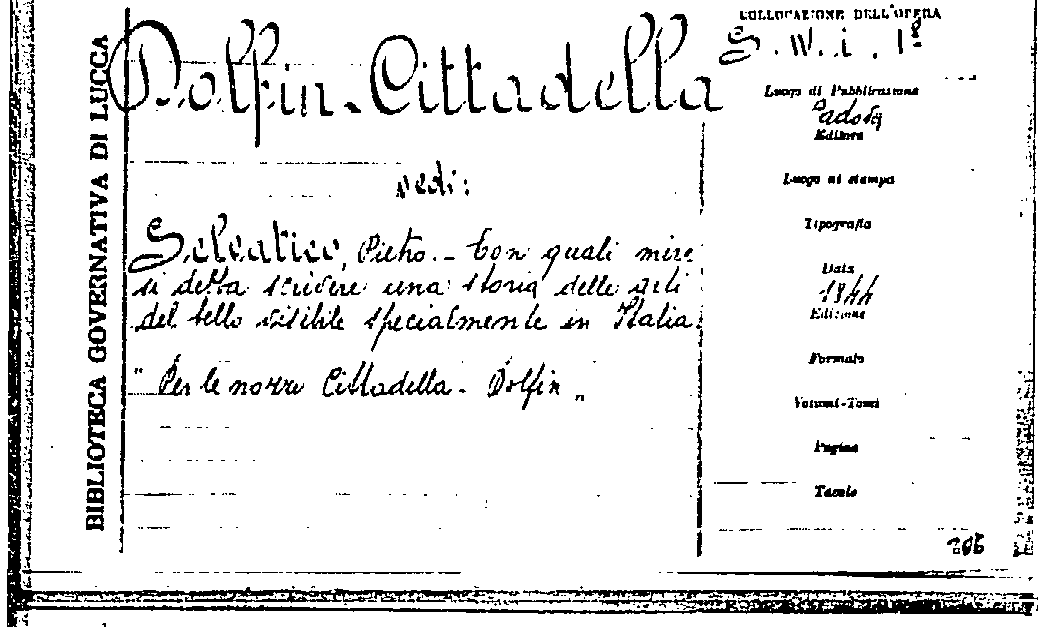 BIBLIOTECA GOVERNATIVA DI LUCCA
Dolfin-Cittadella
vedi:
Selvatico, Pietro. - Con quali mire
si debba scrivere una storia delle arti
del bello visibile specialmente in Italia.
"Per le nozze Cittadella - Dolfin"
COLLOCAZIONE DELL'OPERA
S. W. i. 18
Luogo di Pubblicazione
Padova
Editore
Luogo di stampa
Tipografia
Data
1844
Edizione
Formato
Volumi-Tomi
Pagine
Tavole
206